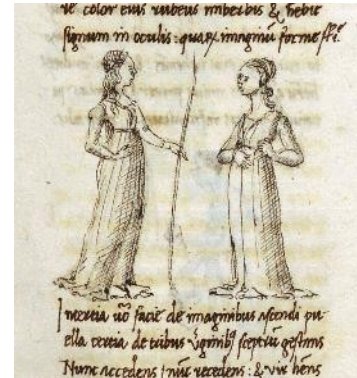 color eius rubeus imberbis & hebit
signum in oculis: quarum imaginū forme
Inertia u͞o facie de imaginibus ascendi pu-
ella tertia de tribus sceptrū gestans
Nunc accedens / nūc recedens: & vir hēns